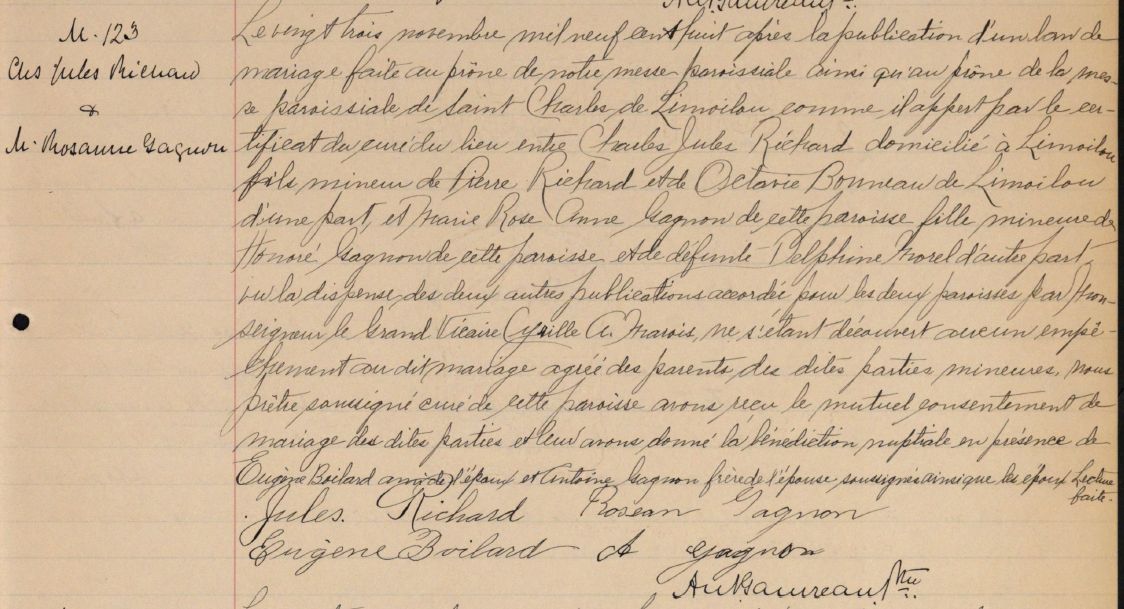 M. 123
Chs Jules Richard
&
M. Rosanne Gagnon
Le vingt trois novembre mil neuf cent huit après la publication d'un ban de
mariage faite au prône de notre messe paroissiale ainsi qu'au prône de la mes-
se paroissiale de Saint Charles de Limoilou comme il appert par le cer-
tificat du curé du lieu entre Charles Jules Richard domicilié à Limoilou
fils mineur de Pierre Richard et de Octavie Bonneau de Limoilou
d'une part, et Marie Rose Anne Gagnon de cette paroisse fille mineure de
Honoré Gagnon de cette paroisse et de défunte Delphine Morel d'autre part,
vu la dispense des deux autres publications accordée pour les deux paroisses par Mon-
seigneur le Grand Vicaire Cyrille A. Marois, ne s'étant découvert aucun empê-
chement au dit mariage agréé des parents des dites parties mineures, nous
prêtre soussigné curé de cette paroisse avons reçu le mutuel consentement de
mariage des dites parties et leur avons donné la bénédiction nuptiale en présence de
Eugène Boilard ami de l'époux et Antoine Gagnon frère de l'épouse soussignés ainsi que les époux Lecture
faite.
Jules. Richard Rosean Gagnon
Eugène Boilard A gagnon
ptre